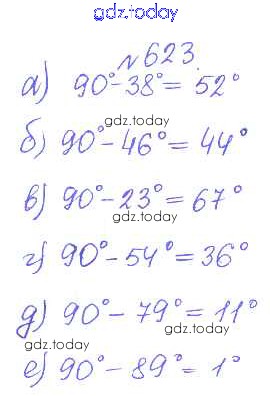 gdz.today
№623.
а) 90°-38°= 52°
gdz.today
б) 90°-46°= 44°
gdz.today
в) 90°-23°= 67°
gdz.today
г) 90°-54°=36°
gdz.today
д) 90°-79°=11°
gdz.today
е) 90°-89°=1°